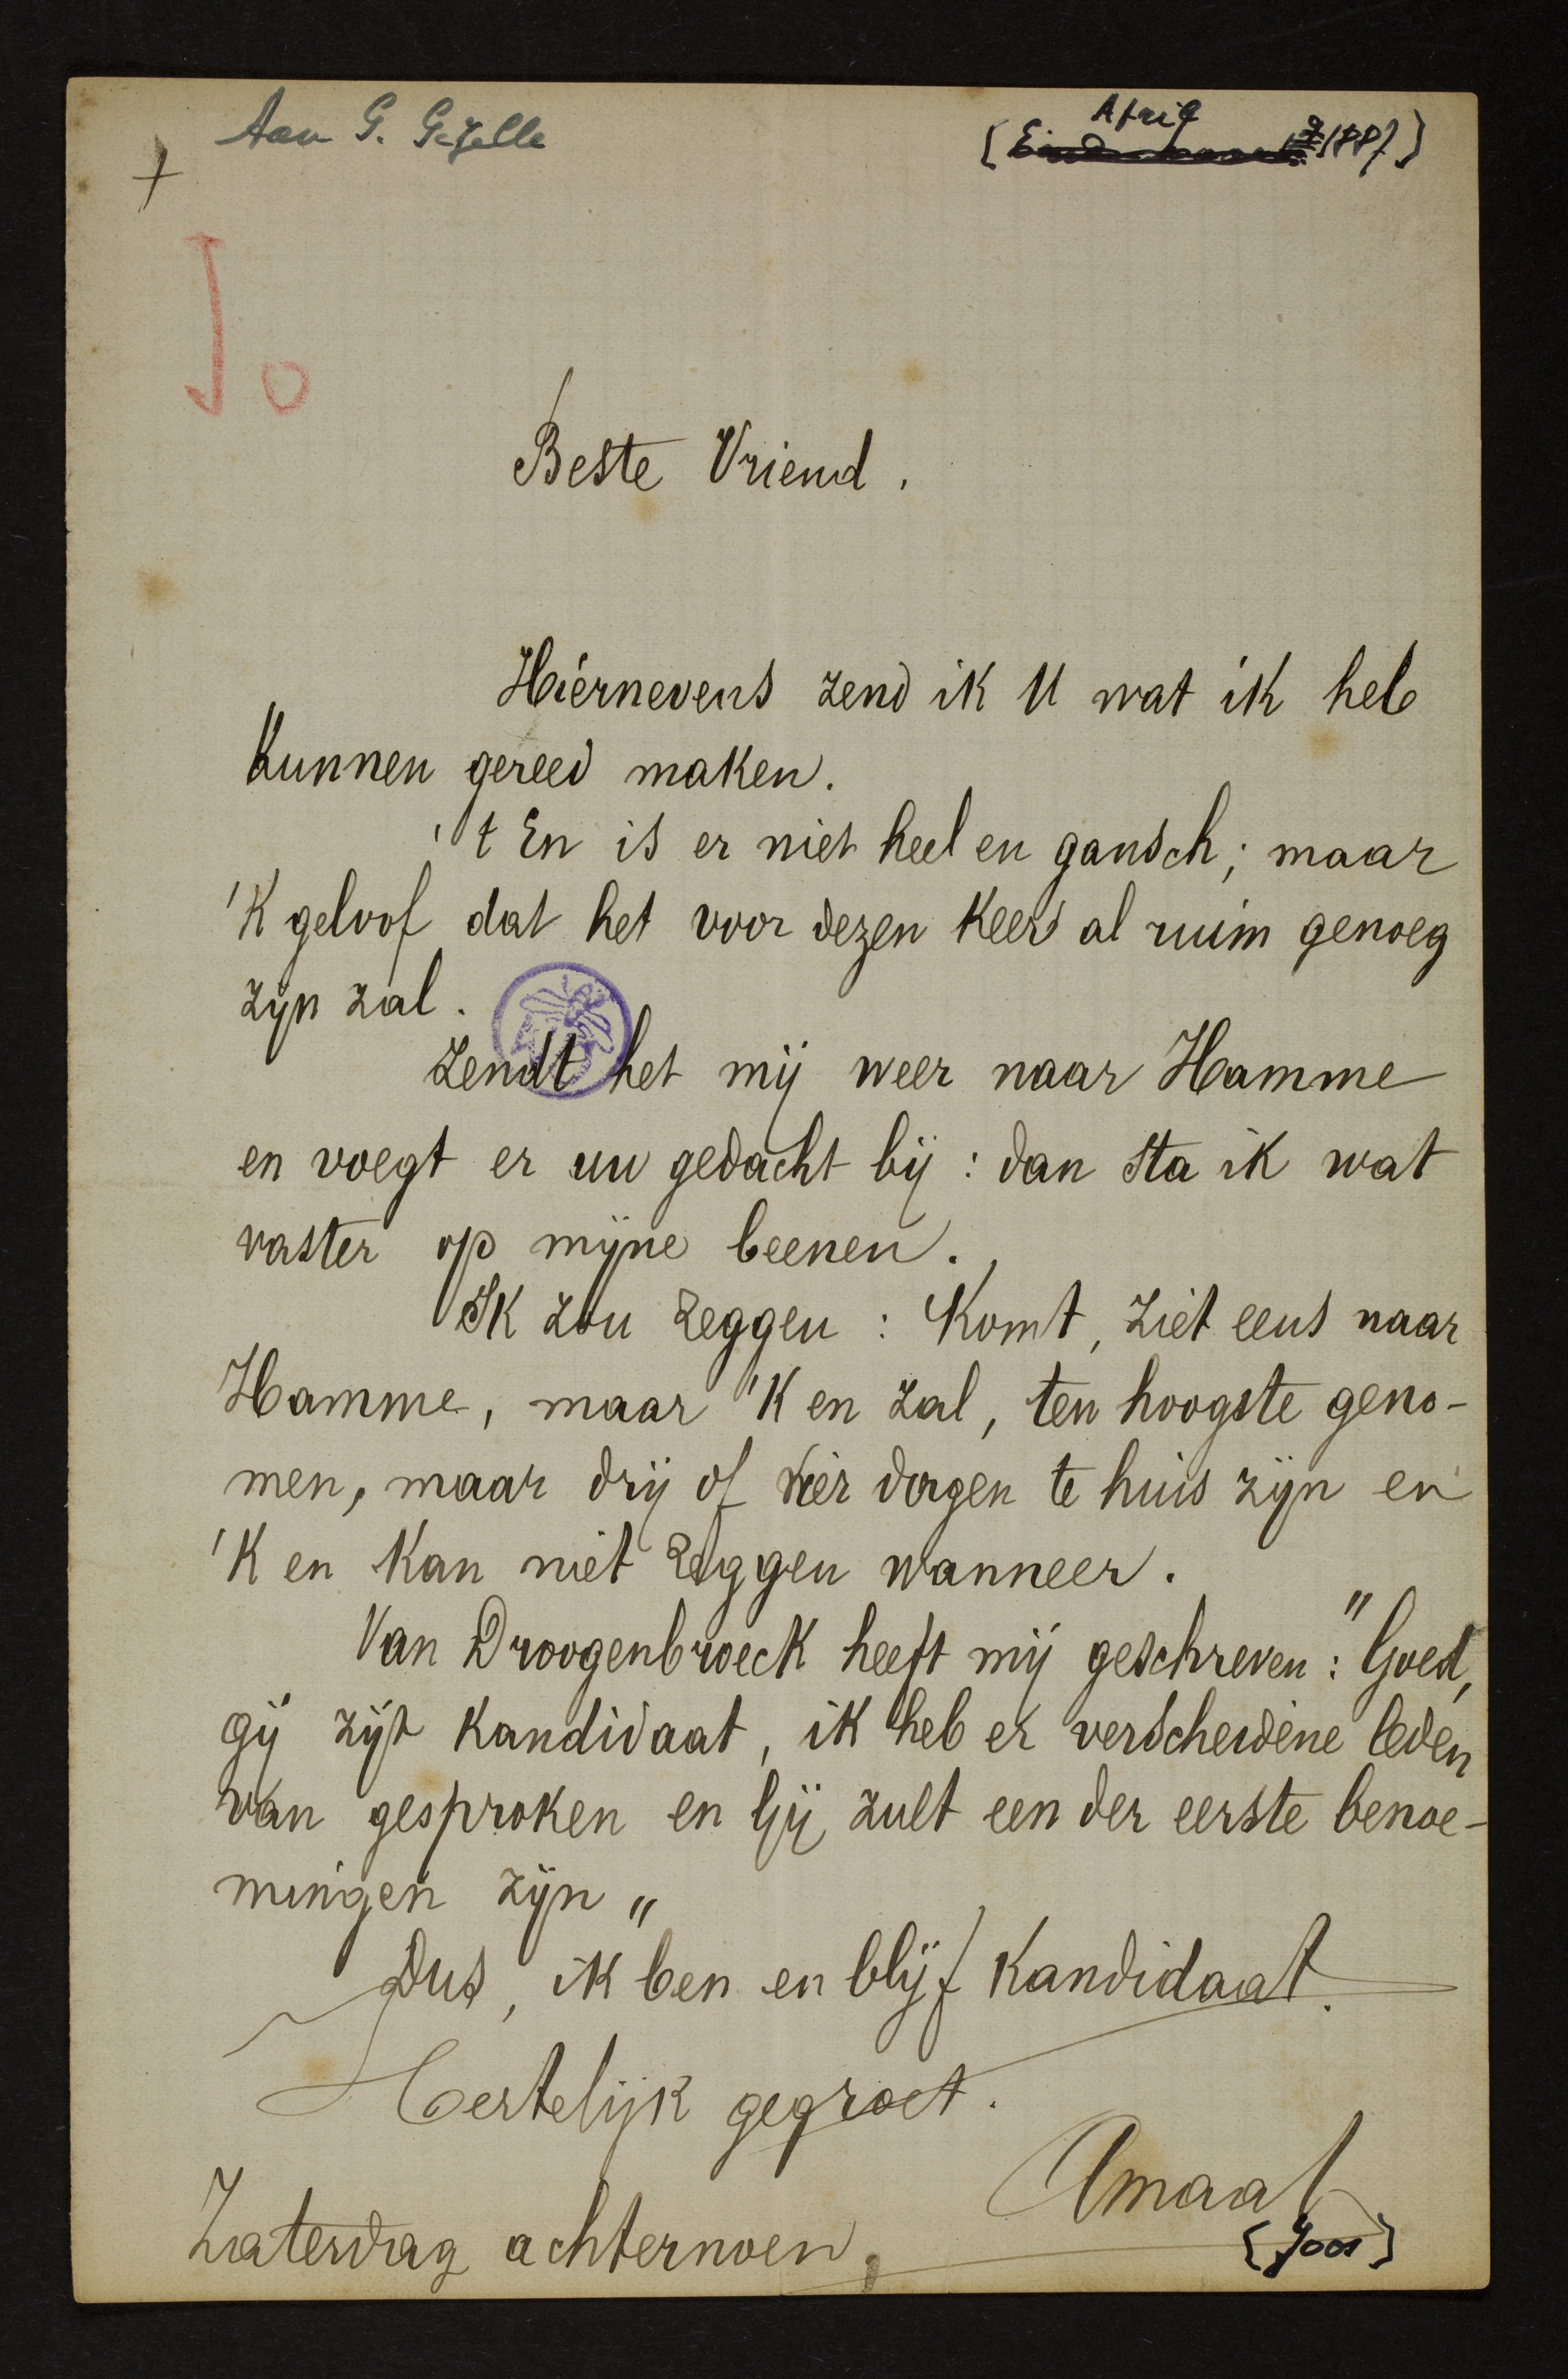 Aan G. Gezelle
April
[Eind maart 1887]
+
Jo
Beste Vriend.
Hiernevens zend ik U wat ik heb
kunnen gereed maken.
't En is er niet heel en gansch; maar
'k geloof dat het voor dezen keer al ruim genoeg
zijn zal.
Zendt het mij weer naar Hamme
en voegt er uw gedacht bij: dan sta ik wat
vaster op mijne beenen.
Ik zou zeggen: Komt, ziet eens naar
Hamme, maar 'k en zal, ten hoogste geno-
men, maar drij of vier dagen te huis zijn en
'k en kan niet zeggen wanneer.
Van Droogenbroeck heeft mij geschreven: "Goed,
gij zijt kandidaat, ik heb er verscheidene leden
van gesproken en Gij zult een der eerste benoe-
mingen zijn"
Dus, ik ben en blijf kandidaat.
Hertelijk gegroet.
Amaat
[Joos]
Zaterdag achternoen,